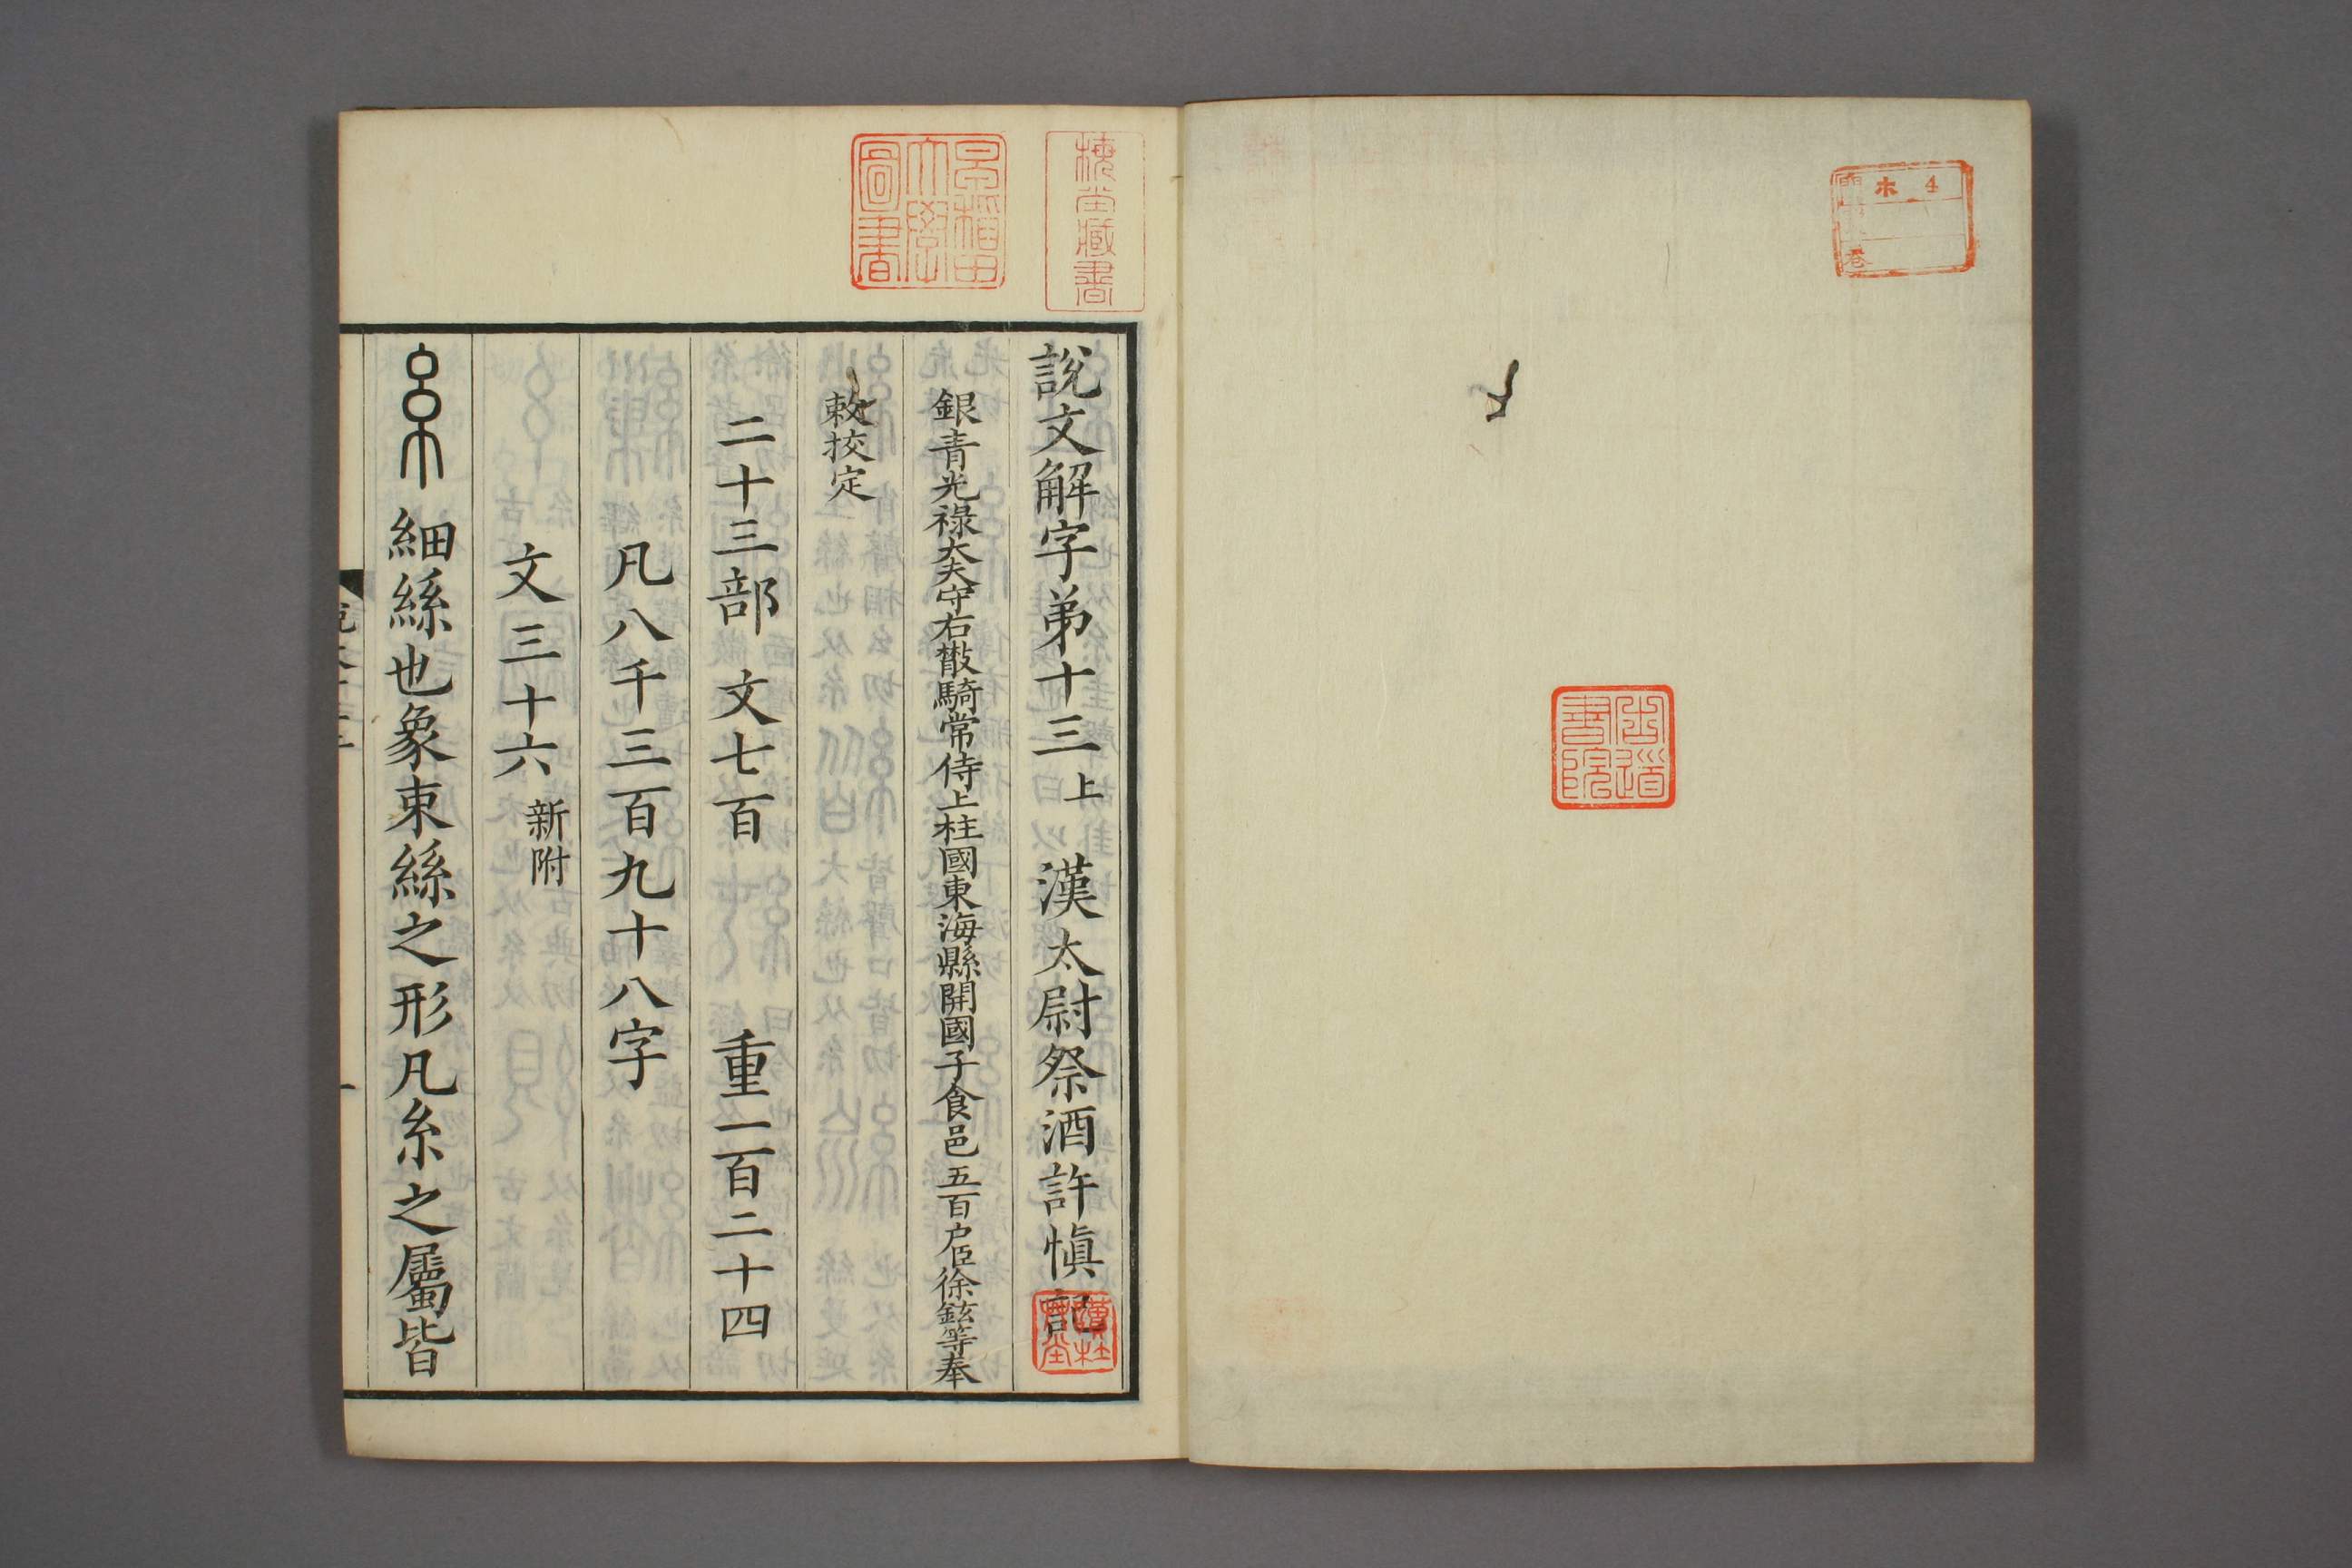 ホ 4
巻
書院
梅堂臧書
早稲田大學圖書
說文解字弟十三上 漢太尉祭酒許慎記
銀青光祿大夫守右散騎常侍上柱國東海縣開國子食邑五百户臣徐鉉等奉
敕挍定
二十三部 文七百 重一百二十四
凡八千三百九十八字
文三十六新附
糸 細絲也象束絲之形凡糸之屬皆